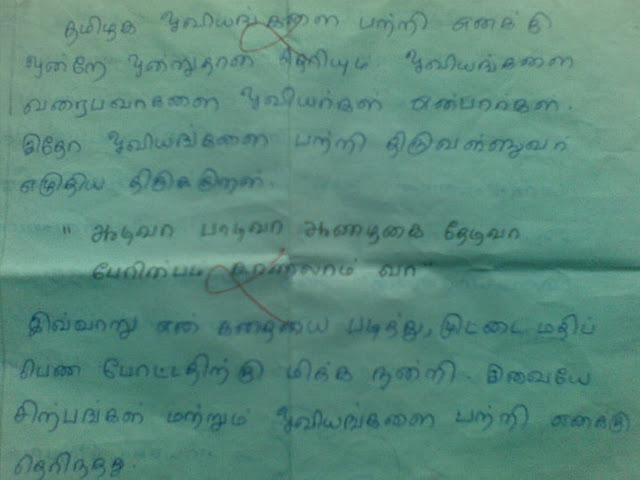 தமிழக ஓவியங்களை பற்றி எனக்கு
ஒன்றே ஒன்றுதான் தெரியும் ஓவியங்களை
வரைபவர்களை ஓவியர்கள் என்பார்கள்.
இதோ ஓவியங்களை பற்றி திருவள்ளுவர்
எழுதிய திருக்குறள்.
" ஆடிவா பாடிவா ஆணழகை தேடிவா
பேரின்பம் காணலாம் வா"
இவ்வாறு என் கதையை படித்து, முட்டை மதிப்
பெண் போட்டதிற்கு மிக்க நன்றி. இவையே
சிற்பங்கள் மற்றும் ஓவியங்களை பற்றி எனக்கு
தெரிந்தது.